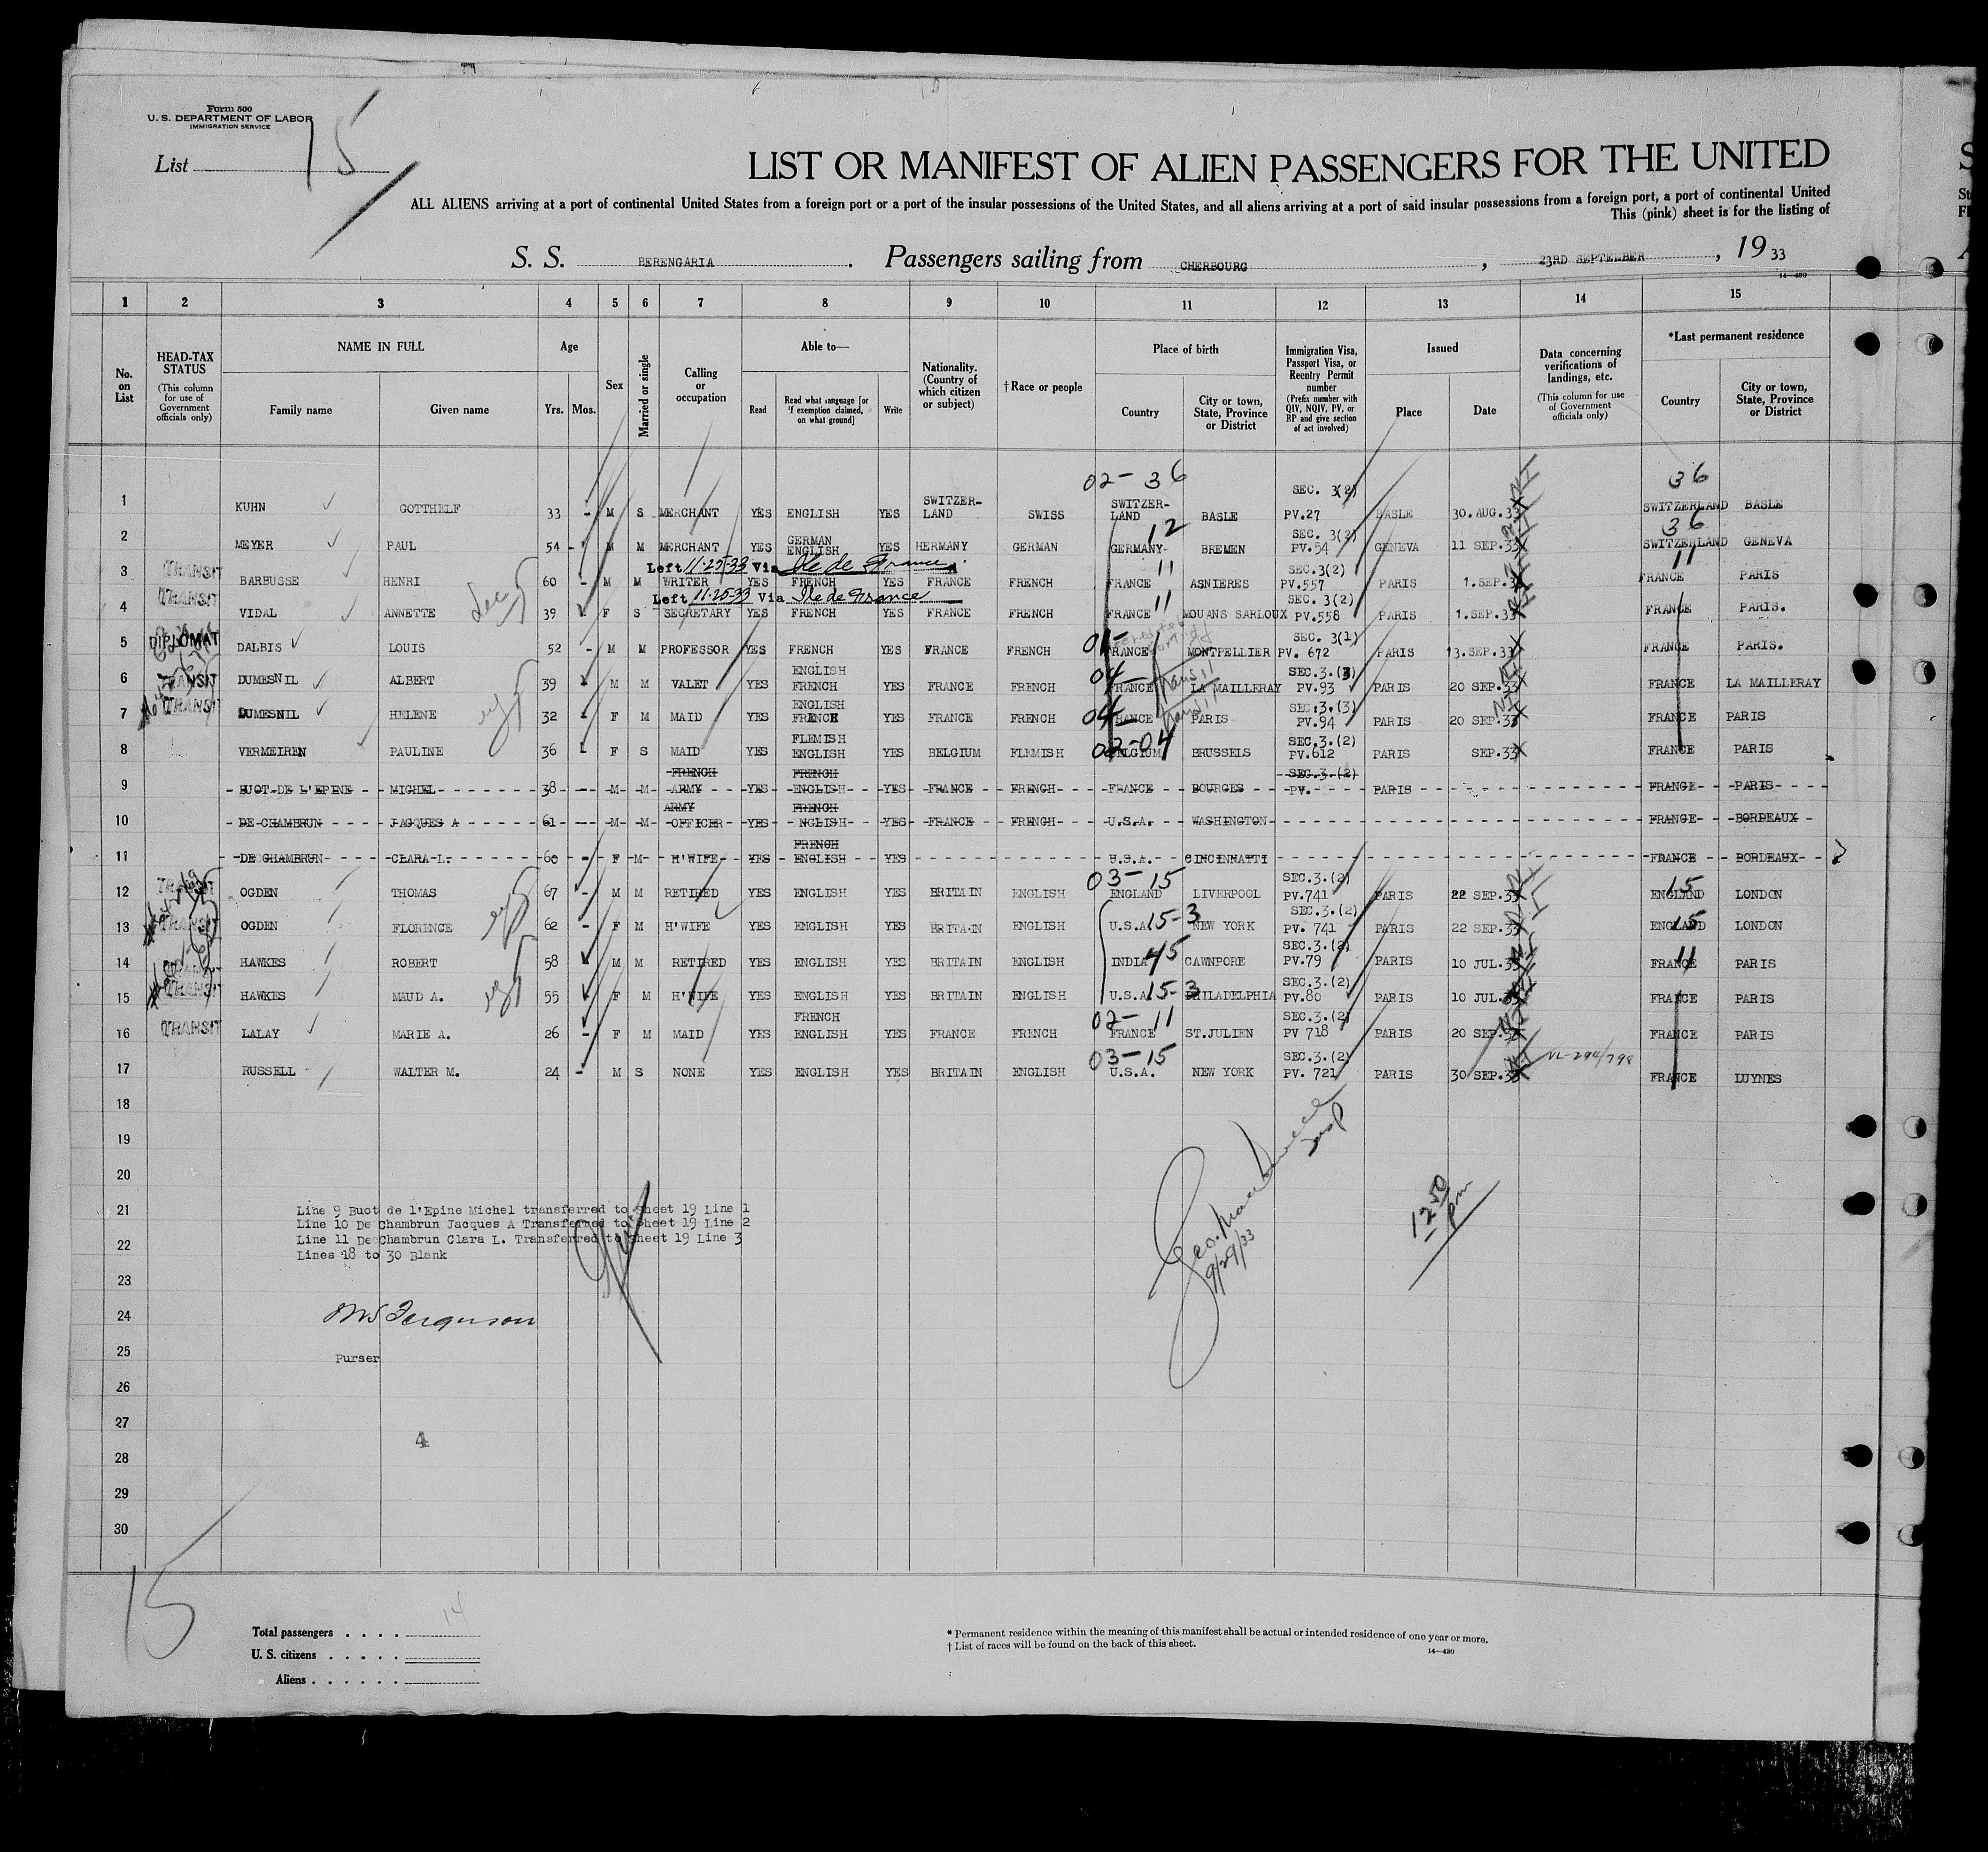 Form 500
U. S. DEPARTMENT OF LABOR
IMMIGRATION SERVICE
List 15
LIST OR MANIFEST OF ALIEN PASSENGERS FOR THE UNITED
ALL ALIENS arriving at a port of continental United States from a foreign port or a port of the insular possessions of the United States, and all aliens arriving at a port of said insular possessions from a foreign port, a port of continental United
This (pink) sheet is for the listing of
S. S. BERENGARIA . Passengers sailing from CHERBOURG , 23RD SEPTEMBER , 19 33
14—430
1 2 3 4 5 6 7 8 9 10 11 12 13 14 15
No. on List
HEAD-TAX STATUS (This column for use of Government officials only)
NAME IN FULL Family name Given name
Age Yrs. Mos.
Sex
Married or single
Calling or occupation
Able to— Read Read what language [or if exemption claimed, on what ground] Write
Nationality. (Country of which citizen or subject)
† Race or people
Place of birth Country City or town, State, Province or District
Immigration Visa, Passport Visa, or Reentry Permit number (Prefix number with QIV, NQIV, PV, or RP and give section of act involved)
Issued Place Date
Data concerning verifications of landings, etc. (This column for use of Government officials only)
*Last permanent residence Country City or town, State, Province or District
02- 36 36
1 KUHN GOTTHELF 33 - M S MERCHANT YES ENGLISH YES SWITZER-LAND SWISS SWITZER-LAND BASLE SEC. 3(2) PV.27 BASLE 30.AUG.33 SWITZERLAND BASLE
12 36
2 MEYER PAUL 54 - M M MERCHANT YES GERMAN ENGLISH YES HERMANY GERMAN GERMANY- BREMEN SEC. 3(2) PV.54 GENEVA 11 SEP.33 SWITZERLAND GENEVA
Left 11-25-33 Via Ile de France 11 11
3 TRANSIT BARBUSSE HENRI 60 - M M WRITER YES FRENCH YES FRANCE FRENCH FRANCE ASNIERES SEC.3(2) PV.557 PARIS 1.SEP.33 FRANCE PARIS
Left 11-25-33 Via Ile de France 11
4 TRANSIT VIDAL ANNETTE 39 F S SECRETARY YES FRENCH YES FRANCE FRENCH FRANCE MOUANS SARLOUX SEC. 3(2) PV.558 PARIS 1.SEP.33 FRANCE PARIS.
5 DIPLOMAT DALBIS LOUIS 52 - M M PROFESSOR YES FRENCH YES FRANCE FRENCH 01- FRANCE MONTPELLIER SEC. 3(1) PV. 672 PARIS 13.SEP.33 FRANCE PARIS.
6 TRANSIT DUMESNIL ALBERT 39 - M M VALET YES ENGLISH FRENCH YES FRANCE FRENCH 04- FRANCE LA MAILLERAY SEC.3.(3) PV.93 PARIS 20 SEP.33 FRANCE LA MAILLERAY
7 TRANSIT DUMESNIL HELENE 32 - F M MAID YES ENGLISH FRENCH YES FRANCE FRENCH 04- FRANCE PARIS SEC.3.(3) PV.94 PARIS 20 SEP.33 FRANCE PARIS
8 VERMEIREN PAULINE 36 - F S MAID YES FLEMISH ENGLISH YES BELGIUM FLEMISH 02-04 BELGIUM BRUSSELS SEC.3.(2) PV.612 PARIS SEP.33 FRANCE PARIS
9 BUOT DE L'EPINE MICHEL 38 - M M FRENCH ARMY YES FRENCH ENGLISH YES FRANCE FRENCH FRANCE BOURGES SEC.3.(2) PV. PARIS FRANCE PARIS
10 DE CHAMBRUN JACQUES A 61 M M ARMY OFFICER YES FRENCH NGLISH YES FRANCE FRENCH U.S.A. WASHINGTON FRANCE BORDEAUX
11 DE CHAMBRUN CLARA L. 60 - F M H'WIFE YES FRENCH ENGLISH YES U.S.A. CINCINNATTI FRANCE BORDEAUX
03-15 15
12 TRANSIT OGDEN THOMAS 67 - M M RETIRED YES ENGLISH YES BRITAIN ENGLISH ENGLAND LIVERPOOL SEC.3.(2) PV.741 PARIS 22 SEP.33 ENGLAND LONDON
13 TRANSIT OGDEN FLORENCE 62 - F M H'WIFE YES ENGLISH YES BRITAIN ENGLISH U.S.A 15-3 NEW YORK SEC.3.(2) PV. 741 PARIS 22 SEP.33 ENGLAND 15 LONDON
14 TRANSIT HAWKES ROBERT 58 M M RETIRED YES ENGLISH YES BRITAIN ENGLISH INDIA 45 CAWNPORE SEC.3.(2) PV.79 PARIS 10 JUL.33 FRANCE 11 PARIS
15 TRANSIT HAWKES MAUD A. 55 F M H'WIFE YES ENGLISH YES BRITAIN ENGLISH U.S.A 15-3 PHILADELPHIA SEC.3.(2) PV.80 PARIS 10 JUL.33 FRANCE PARIS
16 TRANSIT LALAY MARIE A. 26 - F M MAID YES FRENCH ENGLISH YES FRANCE FRENCH 02-11 FRANCE ST.JULIEN SEC.3.(2) PV 718 PARIS 20 SEP.33 FRANCE PARIS
03-15
17 RUSSELL WALTER M. 24 - M S NONE YES ENGLISH YES BRITAIN ENGLISH U.S.A. NEW YORK SEC.3.(2) PV. 721 PARIS 30 SEP.33 VL-294/798 FRANCE LUYNES
18
19
20
21
22
23
24
25
26
27
28
29
30
Line 9 Buot de l'Epine Michel transferred to Sheet 19 Line 1
Line 10 De Chambrun Jacques A Transferred to Sheet 19 Line 2
Line 11 De Chambrun Clara L. Transferred to Sheet 19 Line 3
Lines 18 to 30 Blank
Ferguson
Purser
9/29/33
12 50 pm
4
15
Total passengers . . . . 14
U. S. citizens . . . . .
Aliens . . . . . .
* Permanent residence within the meaning of this manifest shall be actual or intended residence of one year or more.
† List of races will be found on the back of this sheet.
14—430